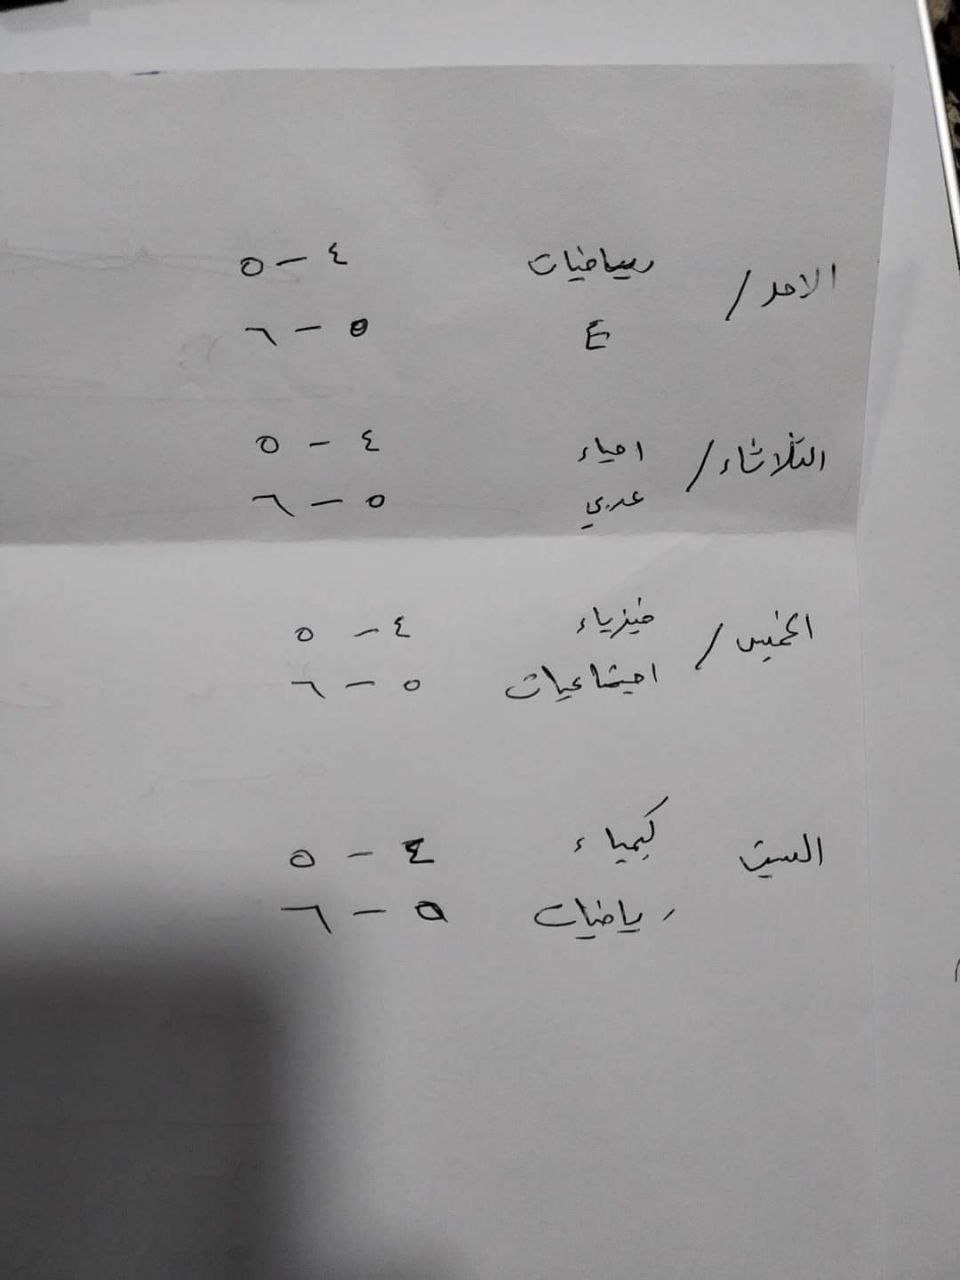 الاحد / رياضيات ٤ - ٥
E ٥ - ٦
الثلاثاء / احياء ٤ - ٥
عربي ٥ - ٦
الخميس / فيزياء ٤ - ٥
اجتماعيات ٥ - ٦
السبت كيمياء ٤ - ٥
رياضيات ٥ - ٦